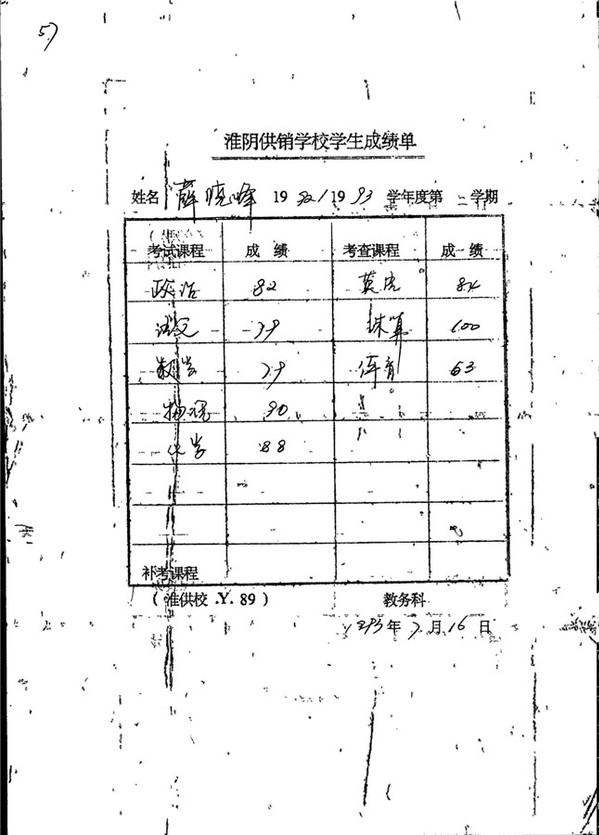 57
淮阴供销学校学生成绩单
姓名 薛晓峰 1992/1993 学年度第二学期
考试课程 成绩 考查课程 成绩
政治 82 英虎 84
语文 79 珠算 100
数学 79 体育 63
物理 90
化学 88
补考课程
(淮供校.Y.89) 教务科
1993年7月16日